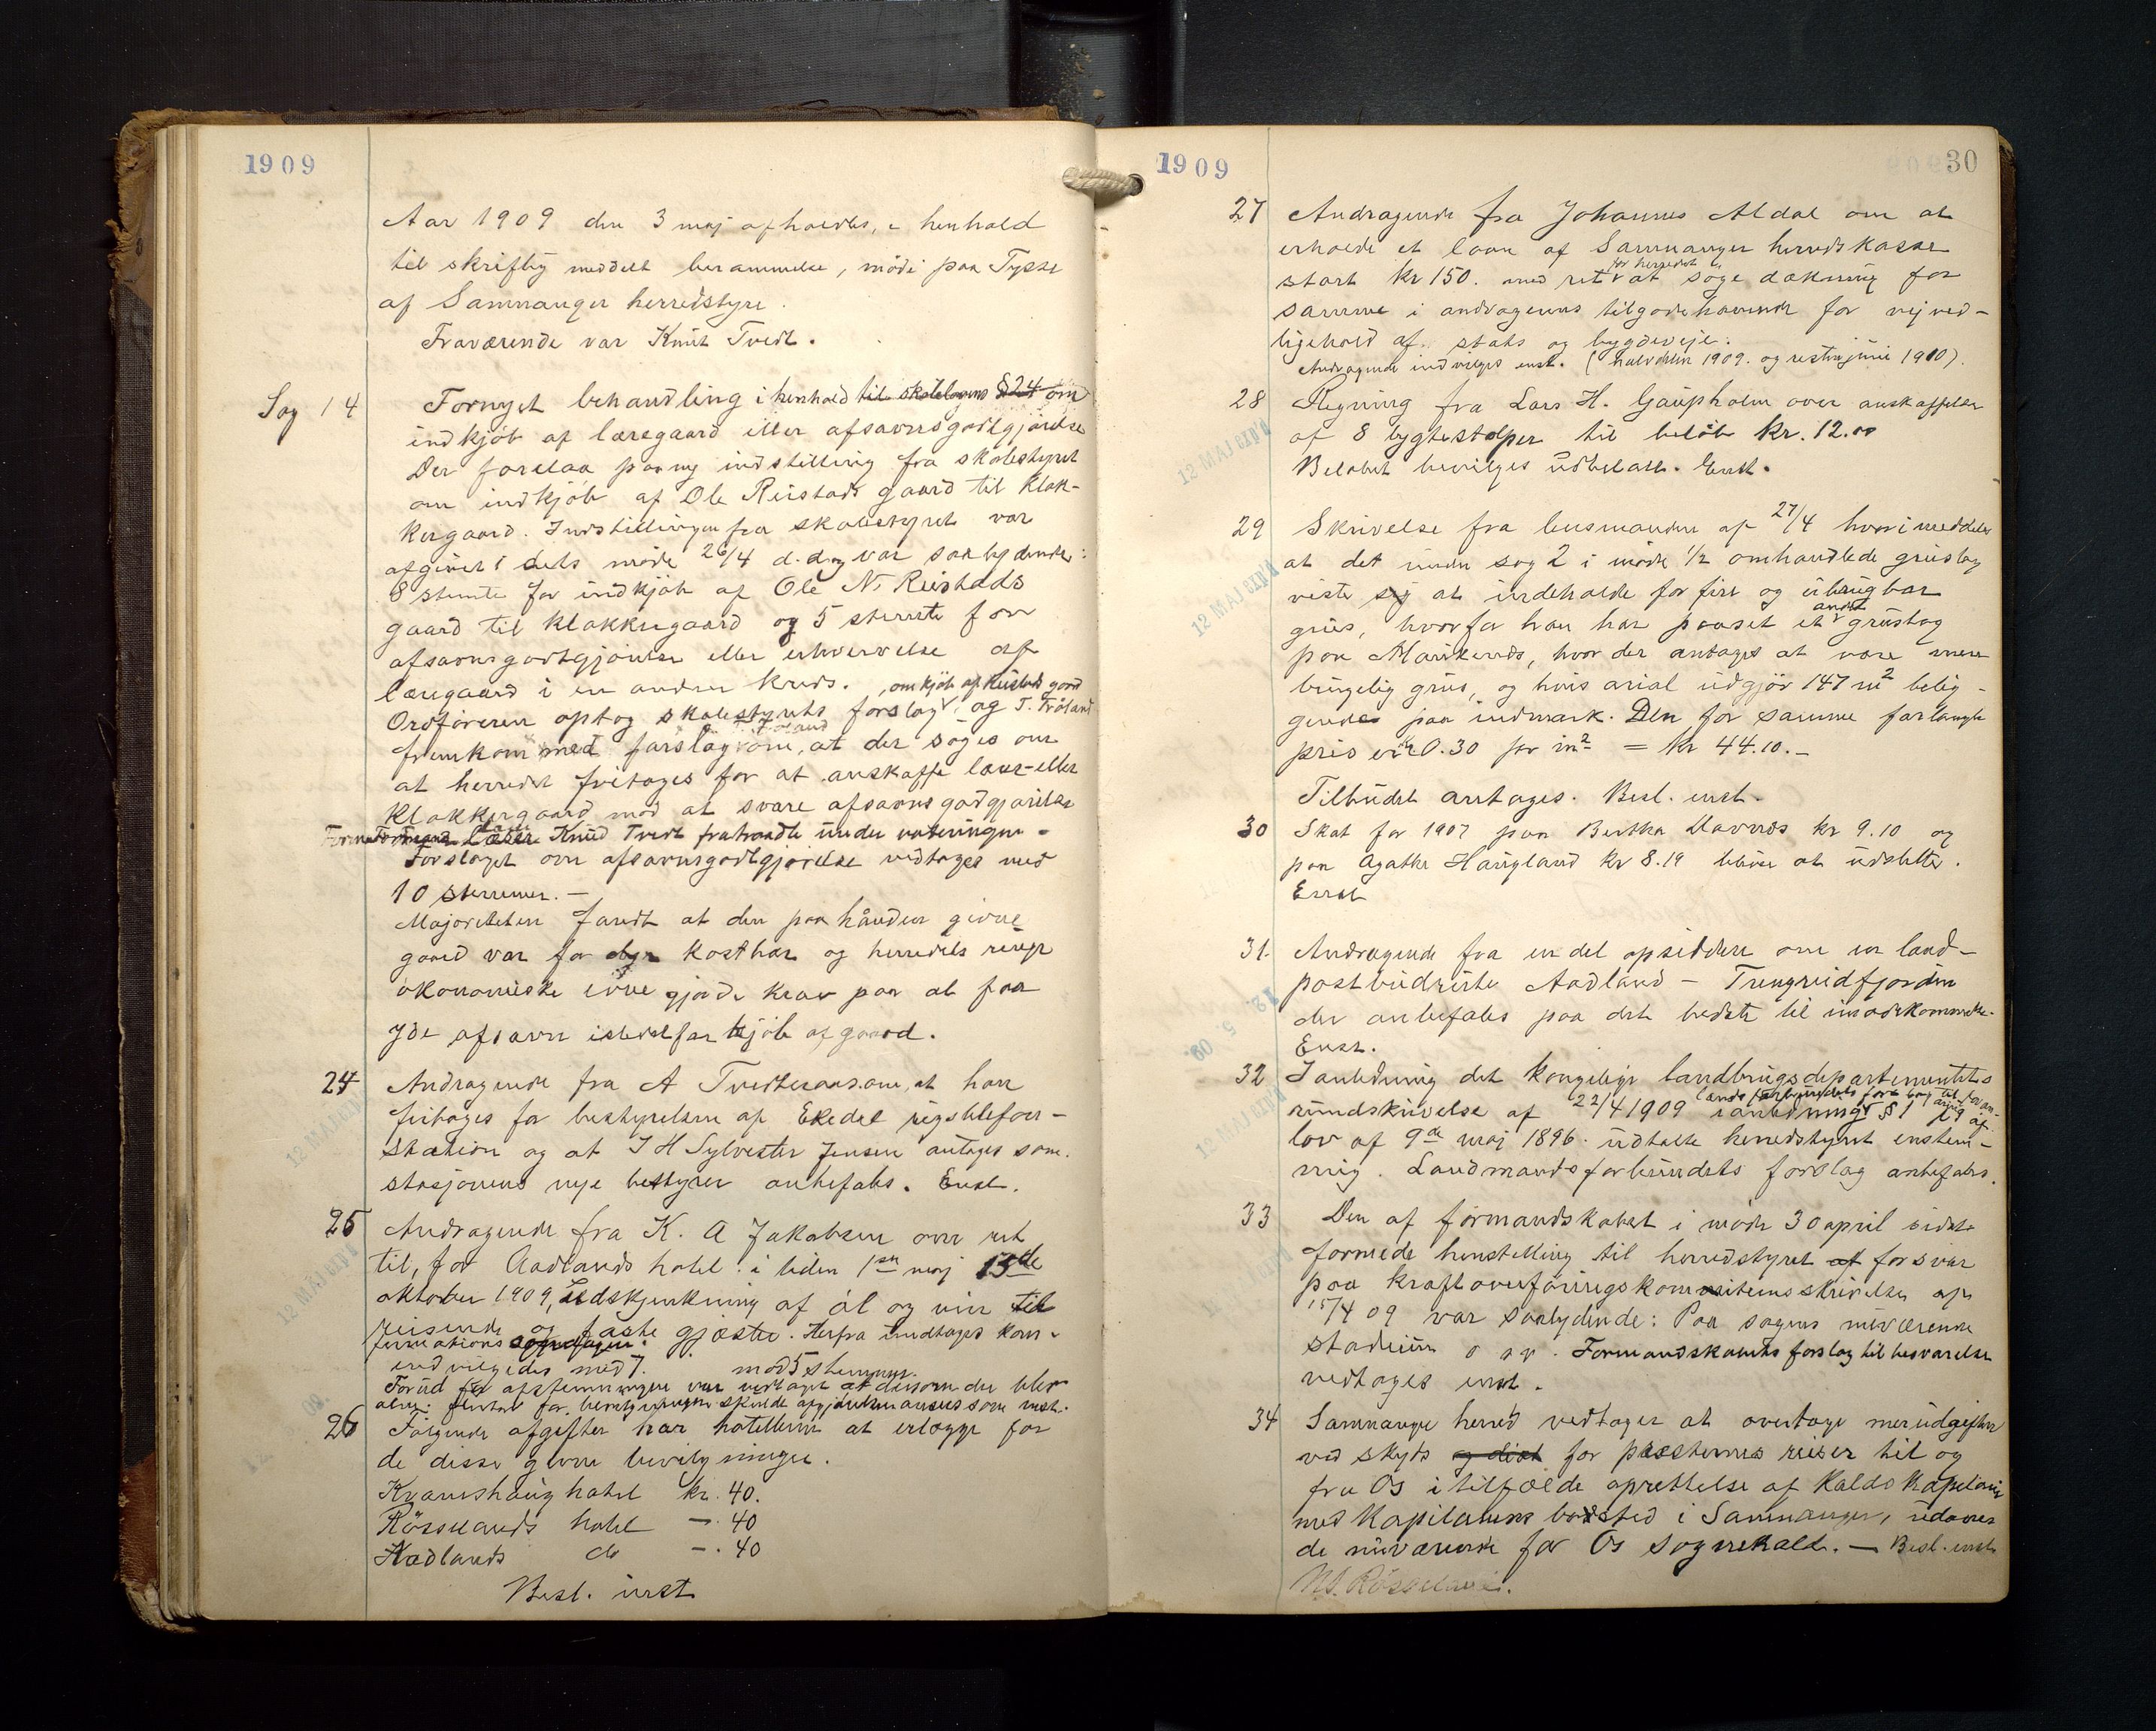 1909
Aar 1909 den 3 maj afholdtes, i henhold
til skriftlig meddelt berammelse, möde paa Tysse
af Samnanger herredstyre.
Fraværende var Knut Tvedt.
Sag 14 Fornyet behandling i henhold til skolelovens §24 om
indkjöb af læregaard eller afsavnsgodtgjörelse
Der forelaa paa ny indstilling fra skolestyret
om indkjöb af Ole Reistads gaard til klok-
kergaard. Indstillingen fra skolestyret var
afgivet i dets möde 26/4 d. og var saalydende:
8 stemte for indkjöb af Ole N. Reistads
gaard til klokkergaard og 5 stemte for
afsavnsgodtgjörelse eller erhvervelse af
læregaard i en anden kreds.
Ordföreren optog skolestyrets forslag, om kjöb af Reistads gaard og T. Fröland
fremkom med forslag om, at der söges om
at herredet fritages for at anskaffe lærer- eller
klokkergaard mod at svare afsavnsgodtgjörelse
Knud Tvedt fratraadte under voteringen.
Forslaget om afsavnsgodtgjörelse vedtages med
10 stemmer.-
Majoriteten fandt at den paa hånden givne
gaard var for dyr kostbar og herredets ringe
ökonomiske evne gjorde krav paa at faa
yde afsavn istedetfor kjöb af gaard.
24 Andragende fra A Tvedteraas om, at han
fritages for bestyrelsen af Ekedal rigstelefon-
station og at J H Sylvester Jensen antages som
stasjonens nye bestyrer anbefales. Enst.
25 Andragende fra K. A Jakobsen om ret
til, for Aadlands hotel i tiden 1ste maj 15de
oktober 1909, udskjenkning af öl og vin til
reisende og faste gjæster. Herfra undtages kon-
firmations
indvilgedes med 7. mod 5 stemmer.
Forud for afstemningen var vedtaget at dersom der blev
flertal for bevilgningen skulde afgjörelsen ansees som enst.
26 Fölgende afgifter har hotellerne at erlægge for
de disse givne bevilgninger.
Kvamshaug hotel kr. 40.
Rösslands hotel -. 40
Aadlands do -. 40
Besl. enst
1909
30
27 Andragende fra Johannes Aldal om at
erholde et laan af Samnanger herredskasse
stort kr 150. med ret for herredet til at söge dækning for
samme i andragerens tilgodehavende for vejved-
ligehold af stats og bygdeveje.
Andragende indvilges enst. (halvdelen 1909. og resten juni 1910).
28 Regning fra Lars H. Gaupholm over anskaffelse
af 8 lygtestolper til belöb kr. 12.00
Belöbet bevilges udbetalt. Enst.
29 Skrivelse fra lensmanden af 27/4 hvori meddeles
at det under sag 2 i möde 1/2 omhandlede grustag
viste sig at indeholde for fire og ubrugbar
grus, hvorfor han har paaset et andet grustag
paa Marikends, hvor der antages at være mere
brugelig grus, og hvis arial udgjör 147 m² belig-
gende paa indmark. Den for samme forlangte
pris er kr 0.30 for m² = kr 44.10.-
Tilbudet antages. Besl. enst.
30 Skat for 1907 paa Bertha Davnes kr 9.10 og
paa Agathe Haugland kr 8.19 bliver at udslette.
Enst
31. Andragende fra en del opsiddere om en land-
postbudrute Aadland - Trengreidfjorden
der anbefales paa det bedste til imödekommelse.
Enst.
32 I anledning det kongelige landbrugsdepartementets
rundskrivelse af 22/4 1909 i anledning landsforbundets forslag til forandring § 1 og 9 af
lov af 9de maj 1896. udtalte herredstyret enstem-
mig. Landmandsforbundets forslag anbefales.
33 Den af formandskabet i möde 30 april sidst
formede henstilling til herredstyret forsvar
paa kraftoverföringskomiteens skrivelse af
15/4 09 var saalydende: Paa sagens nuværende
stadium o s v. Formandskabets forslag til besvarelse
vedtages enst.
34 Samnanger herred vedtager at overtage merudgifter
ved skyds og diæt for præsternes reiser til og
fra Os i tilfælde oprettelse af kaldskapelani
med kapellanens bosted i Samnanger, udover
de nuværende for Os sognekald. - Besl. enst
N. Rössland.
12 MAJ exp'd
12 MAJ exp'd
12 MAJ exp'd
12 MAJ exp'd
12. 5. 09.
12 MAJ exp'd